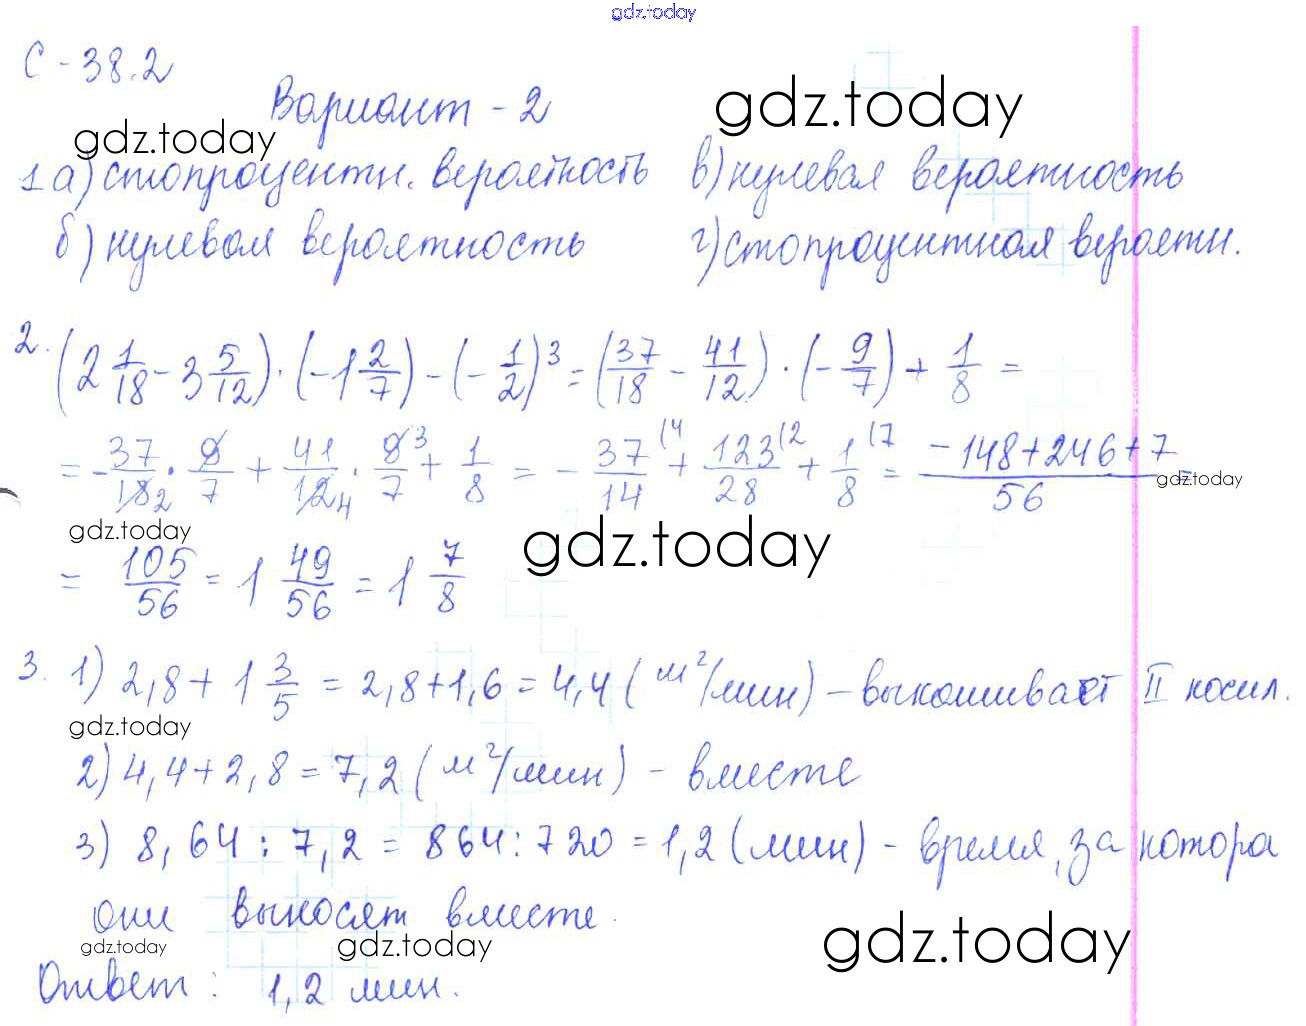 gdz.today
С - 38.2
Вариант - 2
gdz.today
gdz.today
1 а) стопроцентн. вероятность в) нулевая вероятность
б) нулевая вероятность г) стопроцентная вероятн.
2. (2 1/18 - 3 5/12) · (-1 2/7) - (- 1/2)³ = (37/18 - 41/12) · (- 9/7) + 1/8 =
= - 37/18 2 · 9/7 + 41/12 4 · 9 3/7 + 1/8 = - 37/14 (4 + 123/28 (2 + 1/8 (7 = -148+246+7/56 =
gdz.today
gdz.today
gdz.today
= 105/56 = 1 49/56 = 1 7/8
3. 1) 2,8 + 1 3/5 = 2,8+1,6 = 4,4 (м²/мин) - выкашивает II косил.
gdz.today
2) 4,4+2,8 = 7,2 (м²/мин) - вместе
3) 8,64 : 7,2 = 864 : 720 = 1,2 (мин) - время, за котора
они выносят вместе.
gdz.today
gdz.today
gdz.today
Ответ: 1,2 мин.